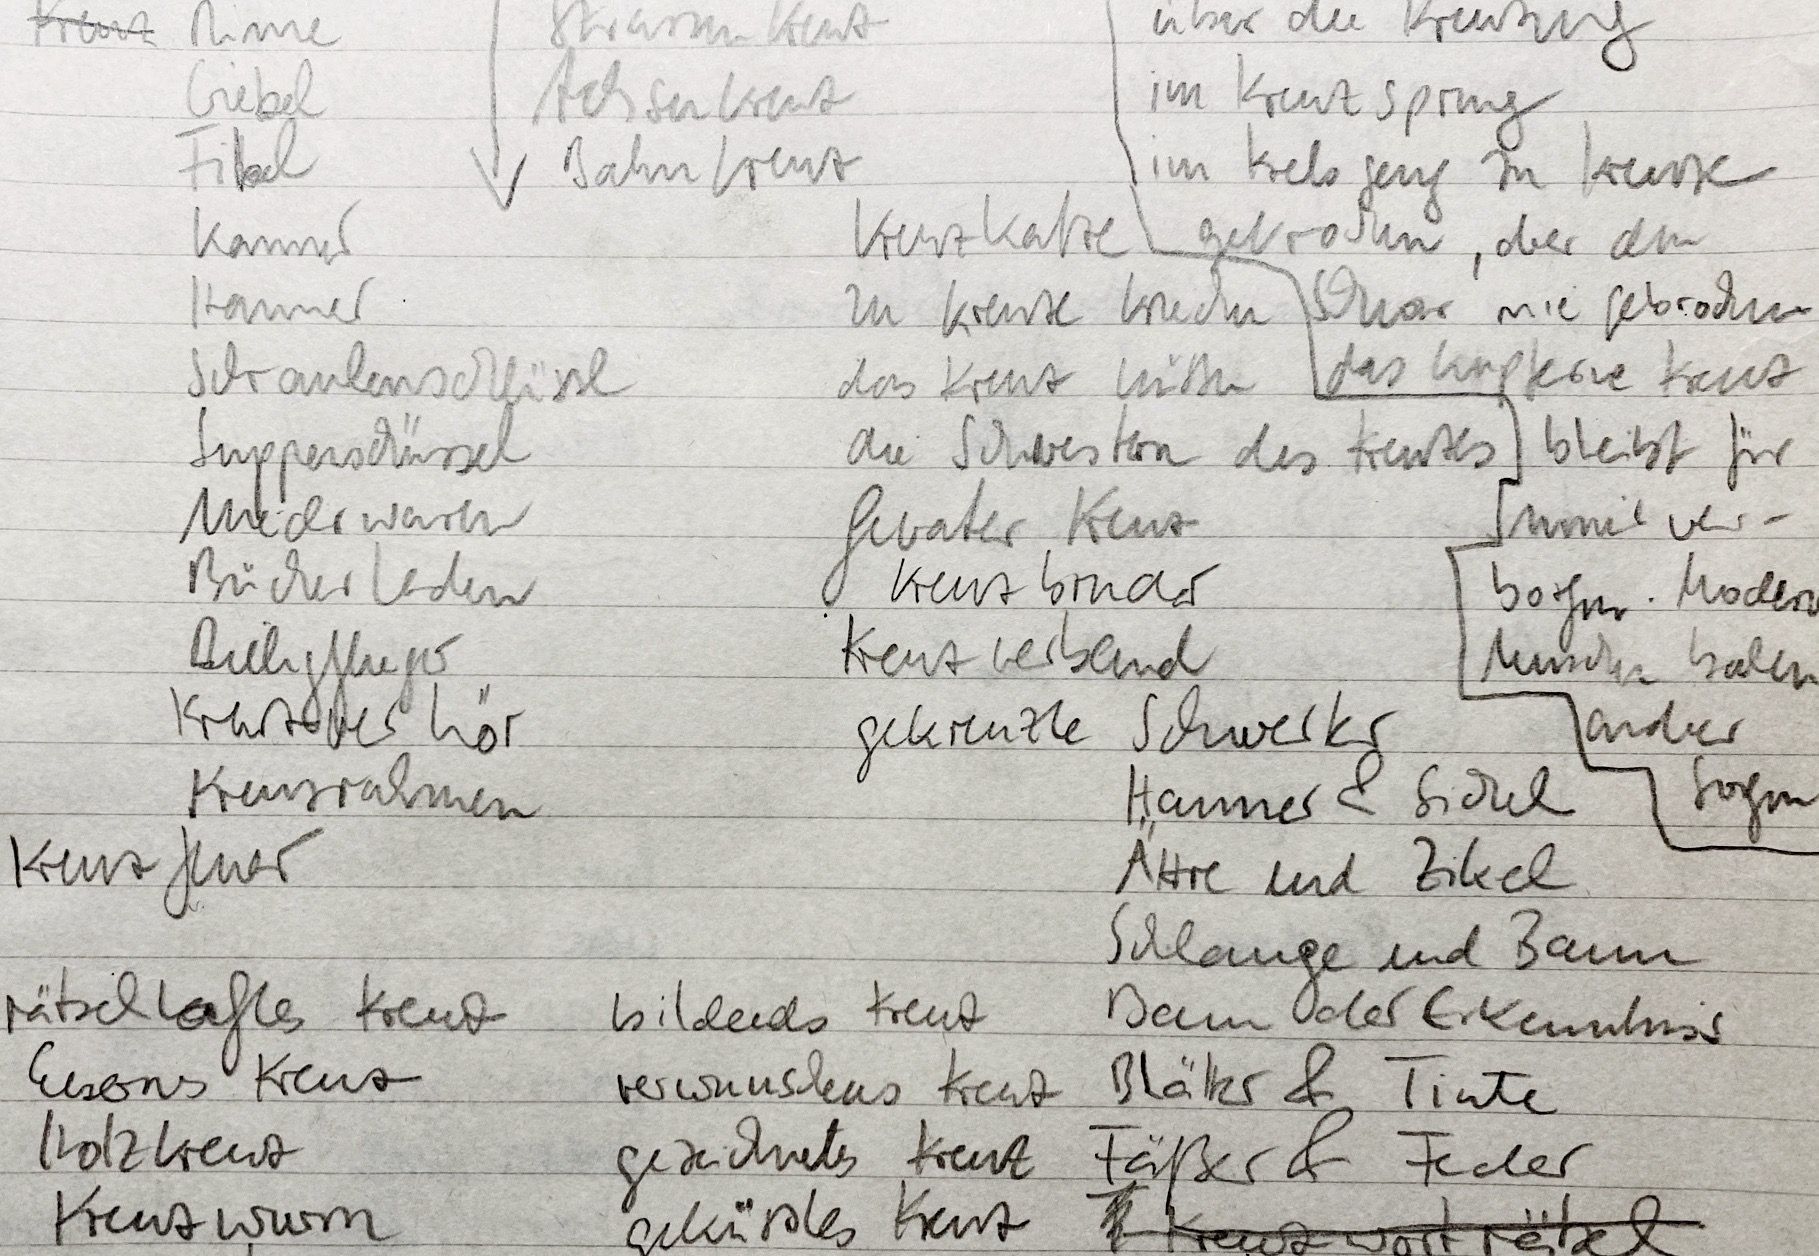 Kreuz Rinne
Giebel
Fibel
Kammer
Hammer
Schraubenschlüssel
Suppenschüssel
Miederwaren
Bücherladen
Kreuzverhör
Kreuzrahmen
Kreuzfeuer
rätselhaftes Kreuz
Eisernes Kreuz
Holzkreuz
Kreuzwurm
Strassenkreuz
Achsenkreuz
Bahnkreuz
Kreuzkatze
zu Kreuze kriechen
das Kreuz küssen
die Schwestern des Kreuzes
Gevater Kreuz
Kreuzbruder
Kreuzverband
gekreuzte Schwerter
Hammer & Sichel
Ähre und Zirkel
Schlange und Baum
Baum der Erkenntnis
Blätter & Tinte
Fäßer & Feder
Kreuzworträtsel
bildendes Kreuz
verwunschenes Kreuz
gezeichnetes Kreuz
geküsstes Kreuz
über die Kreuzung
im Kreuzsprung
im Krebsgang zu Kreuze
gekrochen, aber dem
Schwar nie gebrochen
das kupferne Kreuz
bleibt für
immer ver-
borgen. Modern
Menschen haben
andere
Sorgen